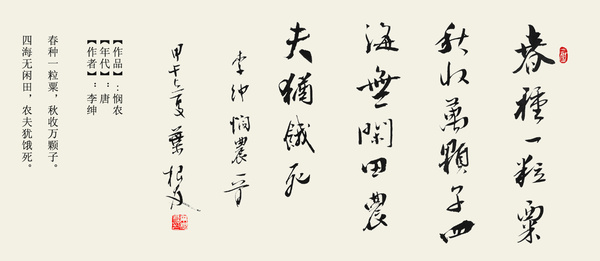 春種一粒粟
秋收萬顆子四
海無閑田農
夫猶餓死
李紳憫農
甲午之夏葉根友
【作品】：悯农
【年代】：唐
【作者】：李绅
春种一粒粟，秋收万颗子。
四海无闲田，农夫犹饿死。